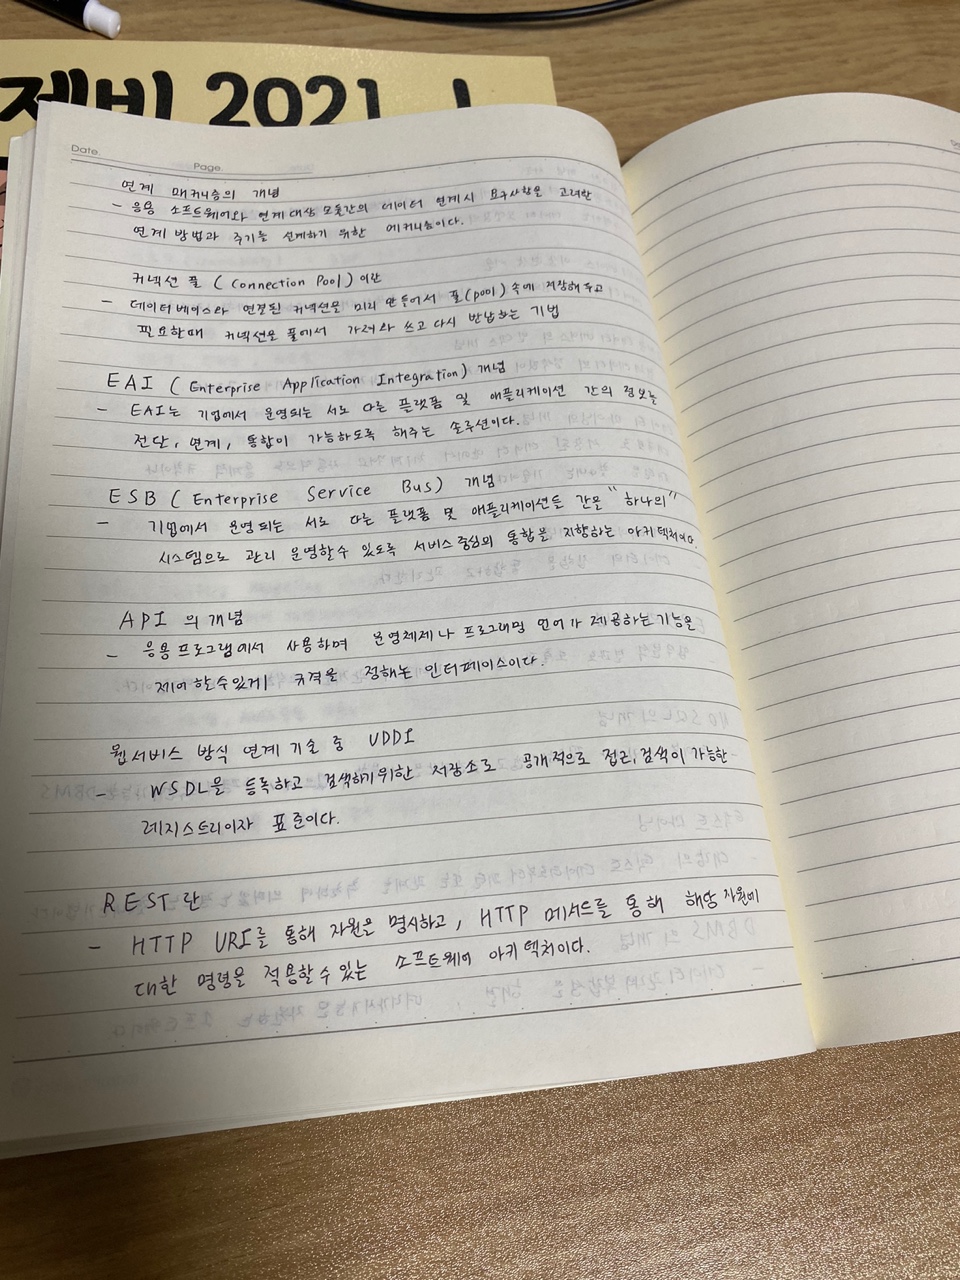 제비 2021
Date.
Page.
연계 매커니즘의 개념
- 응용 소프트웨어와 연계대상 모듈간의 데이터 연계시 요구사항을 고려한
연계 방법과 주기를 설계하기 위한 메커니즘이다.
커넥션 풀 (Connection Pool) 이란
- 데이터베이스와 연결된 커넥션을 미리 만들어서 풀(pool) 속에 저장해 두고
필요할때 커넥션을 풀에서 가져와 쓰고 다시 반납하는 기법
EAI (Enterprise Application Integration) 개념
- EAI는 기업에서 운영되는 서로 다른 플랫폼 및 애플리케이션 간의 정보를
전달, 연계, 통합이 가능하도록 해주는 솔루션이다.
ESB (Enterprise Service Bus) 개념
- 기업에서 운영되는 서로 다른 플랫폼 및 애플리케이션들 간을 "하나의"
시스템으로 관리 운영할수 있도록 서비스 중심의 통합을 지향하는 아키텍처이다.
API 의 개념
- 응용프로그램에서 사용하며 운영체제나 프로그래밍 언어가 제공하는 기능을
제어할수있게 규격을 정해논 인터페이스이다.
웹서비스 방식 연계 기술 중 UDDI
- WSDL을 등록하고 검색하기위한 저장소로 공개적으로 접근, 검색이 가능한
레지스트리이자 표준이다.
REST란
- HTTP URI를 통해 자원을 명시하고, HTTP 메서드를 통해 해당 자원에
대한 명령을 적용할수 있는 소프트웨어 아키텍처이다.